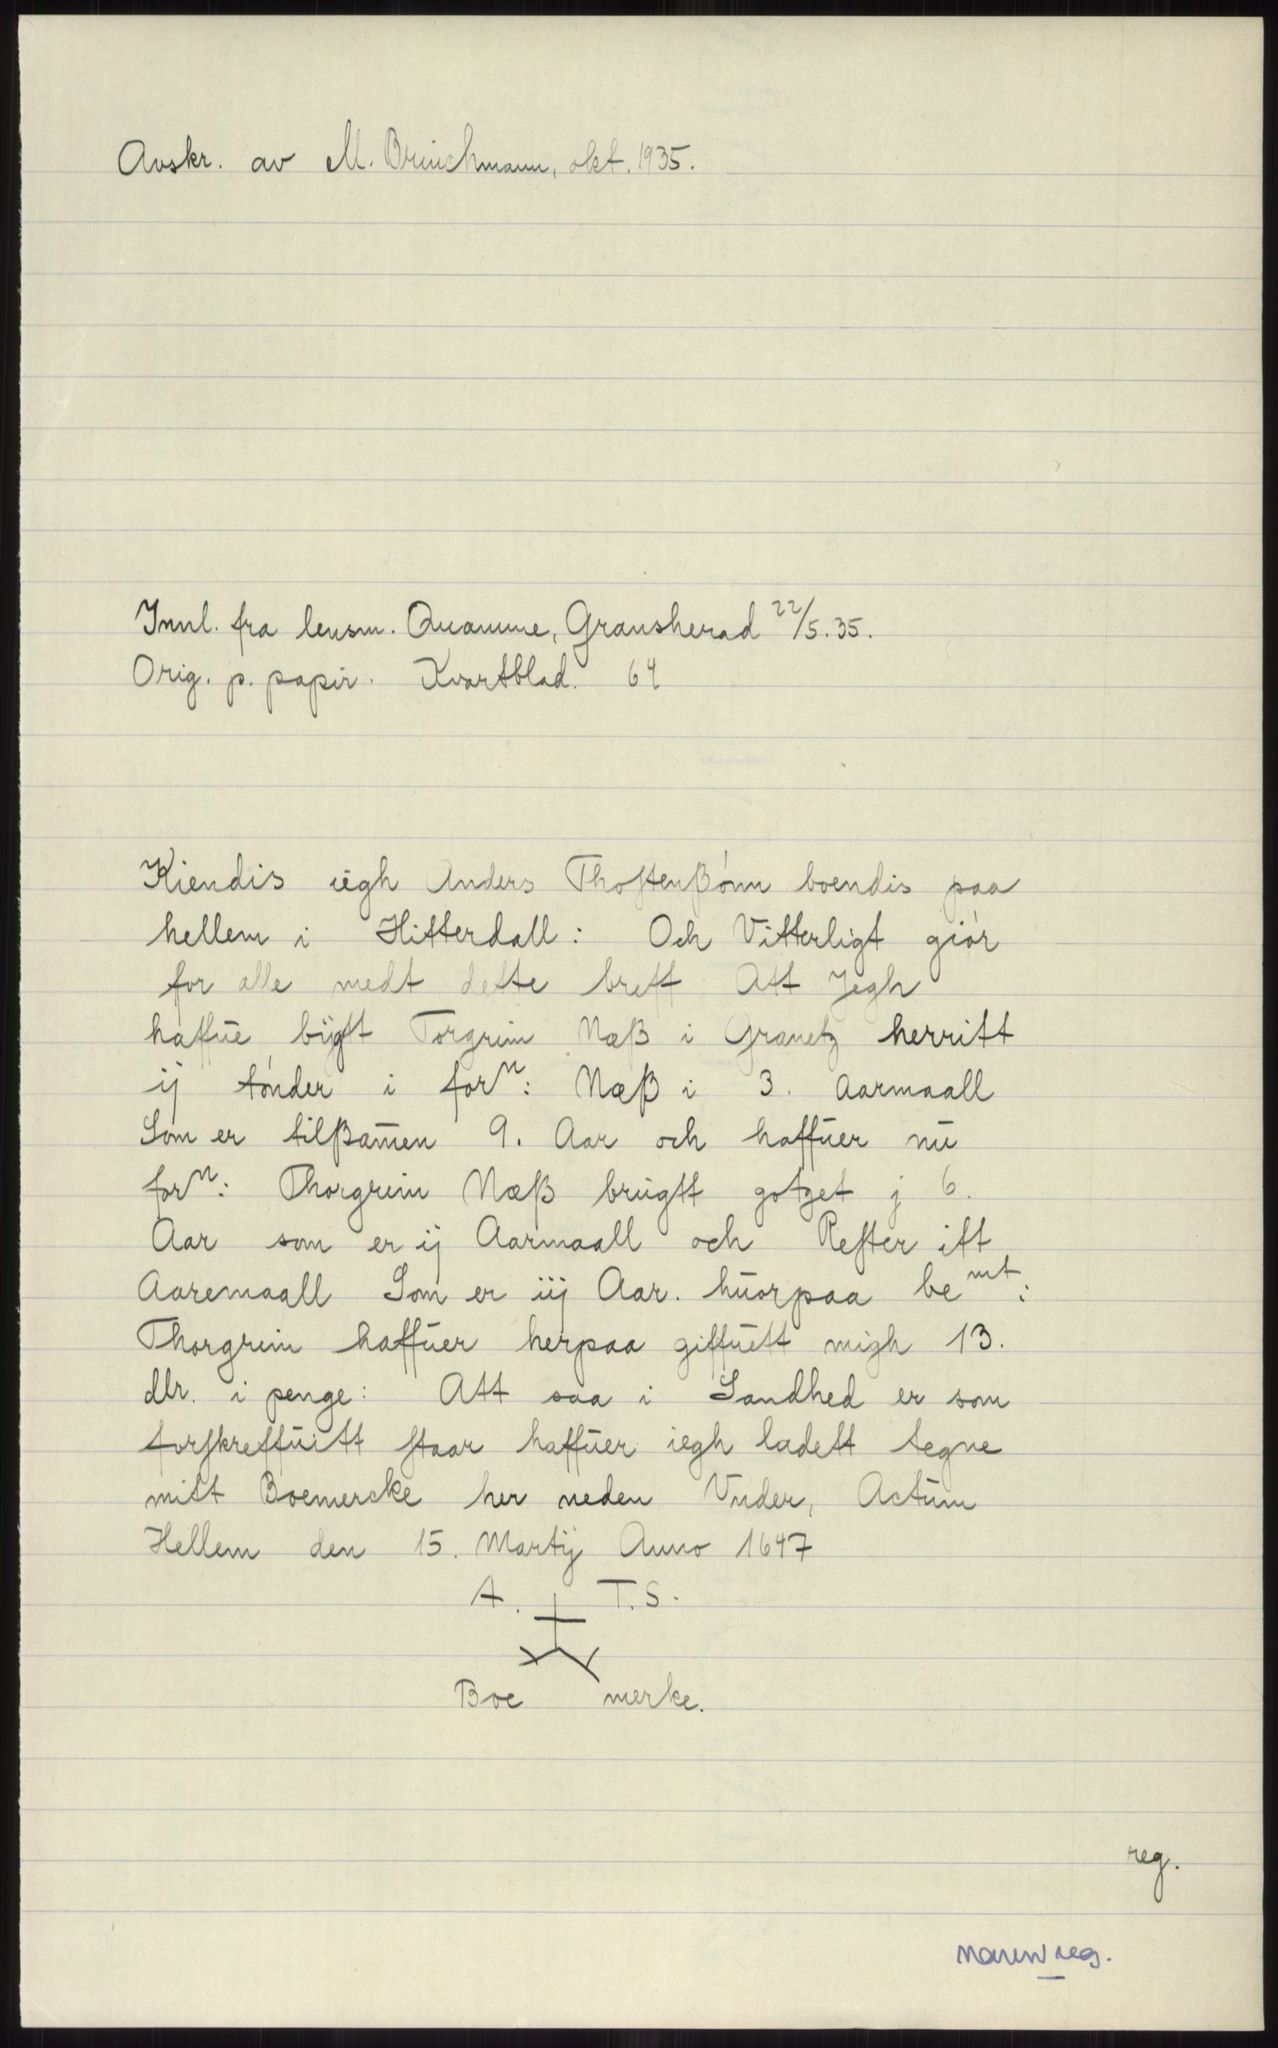 Avskr. av M. Brinchmann, okt. 1935.
Innl. fra lensm. Quamme, Gransherad 22/5.35.
Orig. p. papir. Kvartblad. 64
Kiendis iegh Anders Thostenßönn boendis paa
hellem i Hitterdall: Och Vitterligt giör
for alle medt dette breff Att Jegh
haffue bügt Torgrim Næß i Granetz herritt
ij tönder i forⁿ: Næß i 3. Aarmaall
Som er tilßamen 9. Aar och haffuer nu
forⁿ: Thorgrim Næß brügtt gotzet j 6.
Aar som er ij Aarmaall och Rester itt
Aaremaall Som er iij Aar. huorpaa beᵐᵗ:
Thorgrim haffuer herpaa giffuett migh 13.
dlr. i penge: Att saa i Sandhed er som
forskreffuitt staar haffuer iegh ladett tegne
mitt Boemercke her neden Vnder, Actum
Hellem den 15. Martij Anno 1647
A. T.S.
Boe merke.
reg.
navnreg.